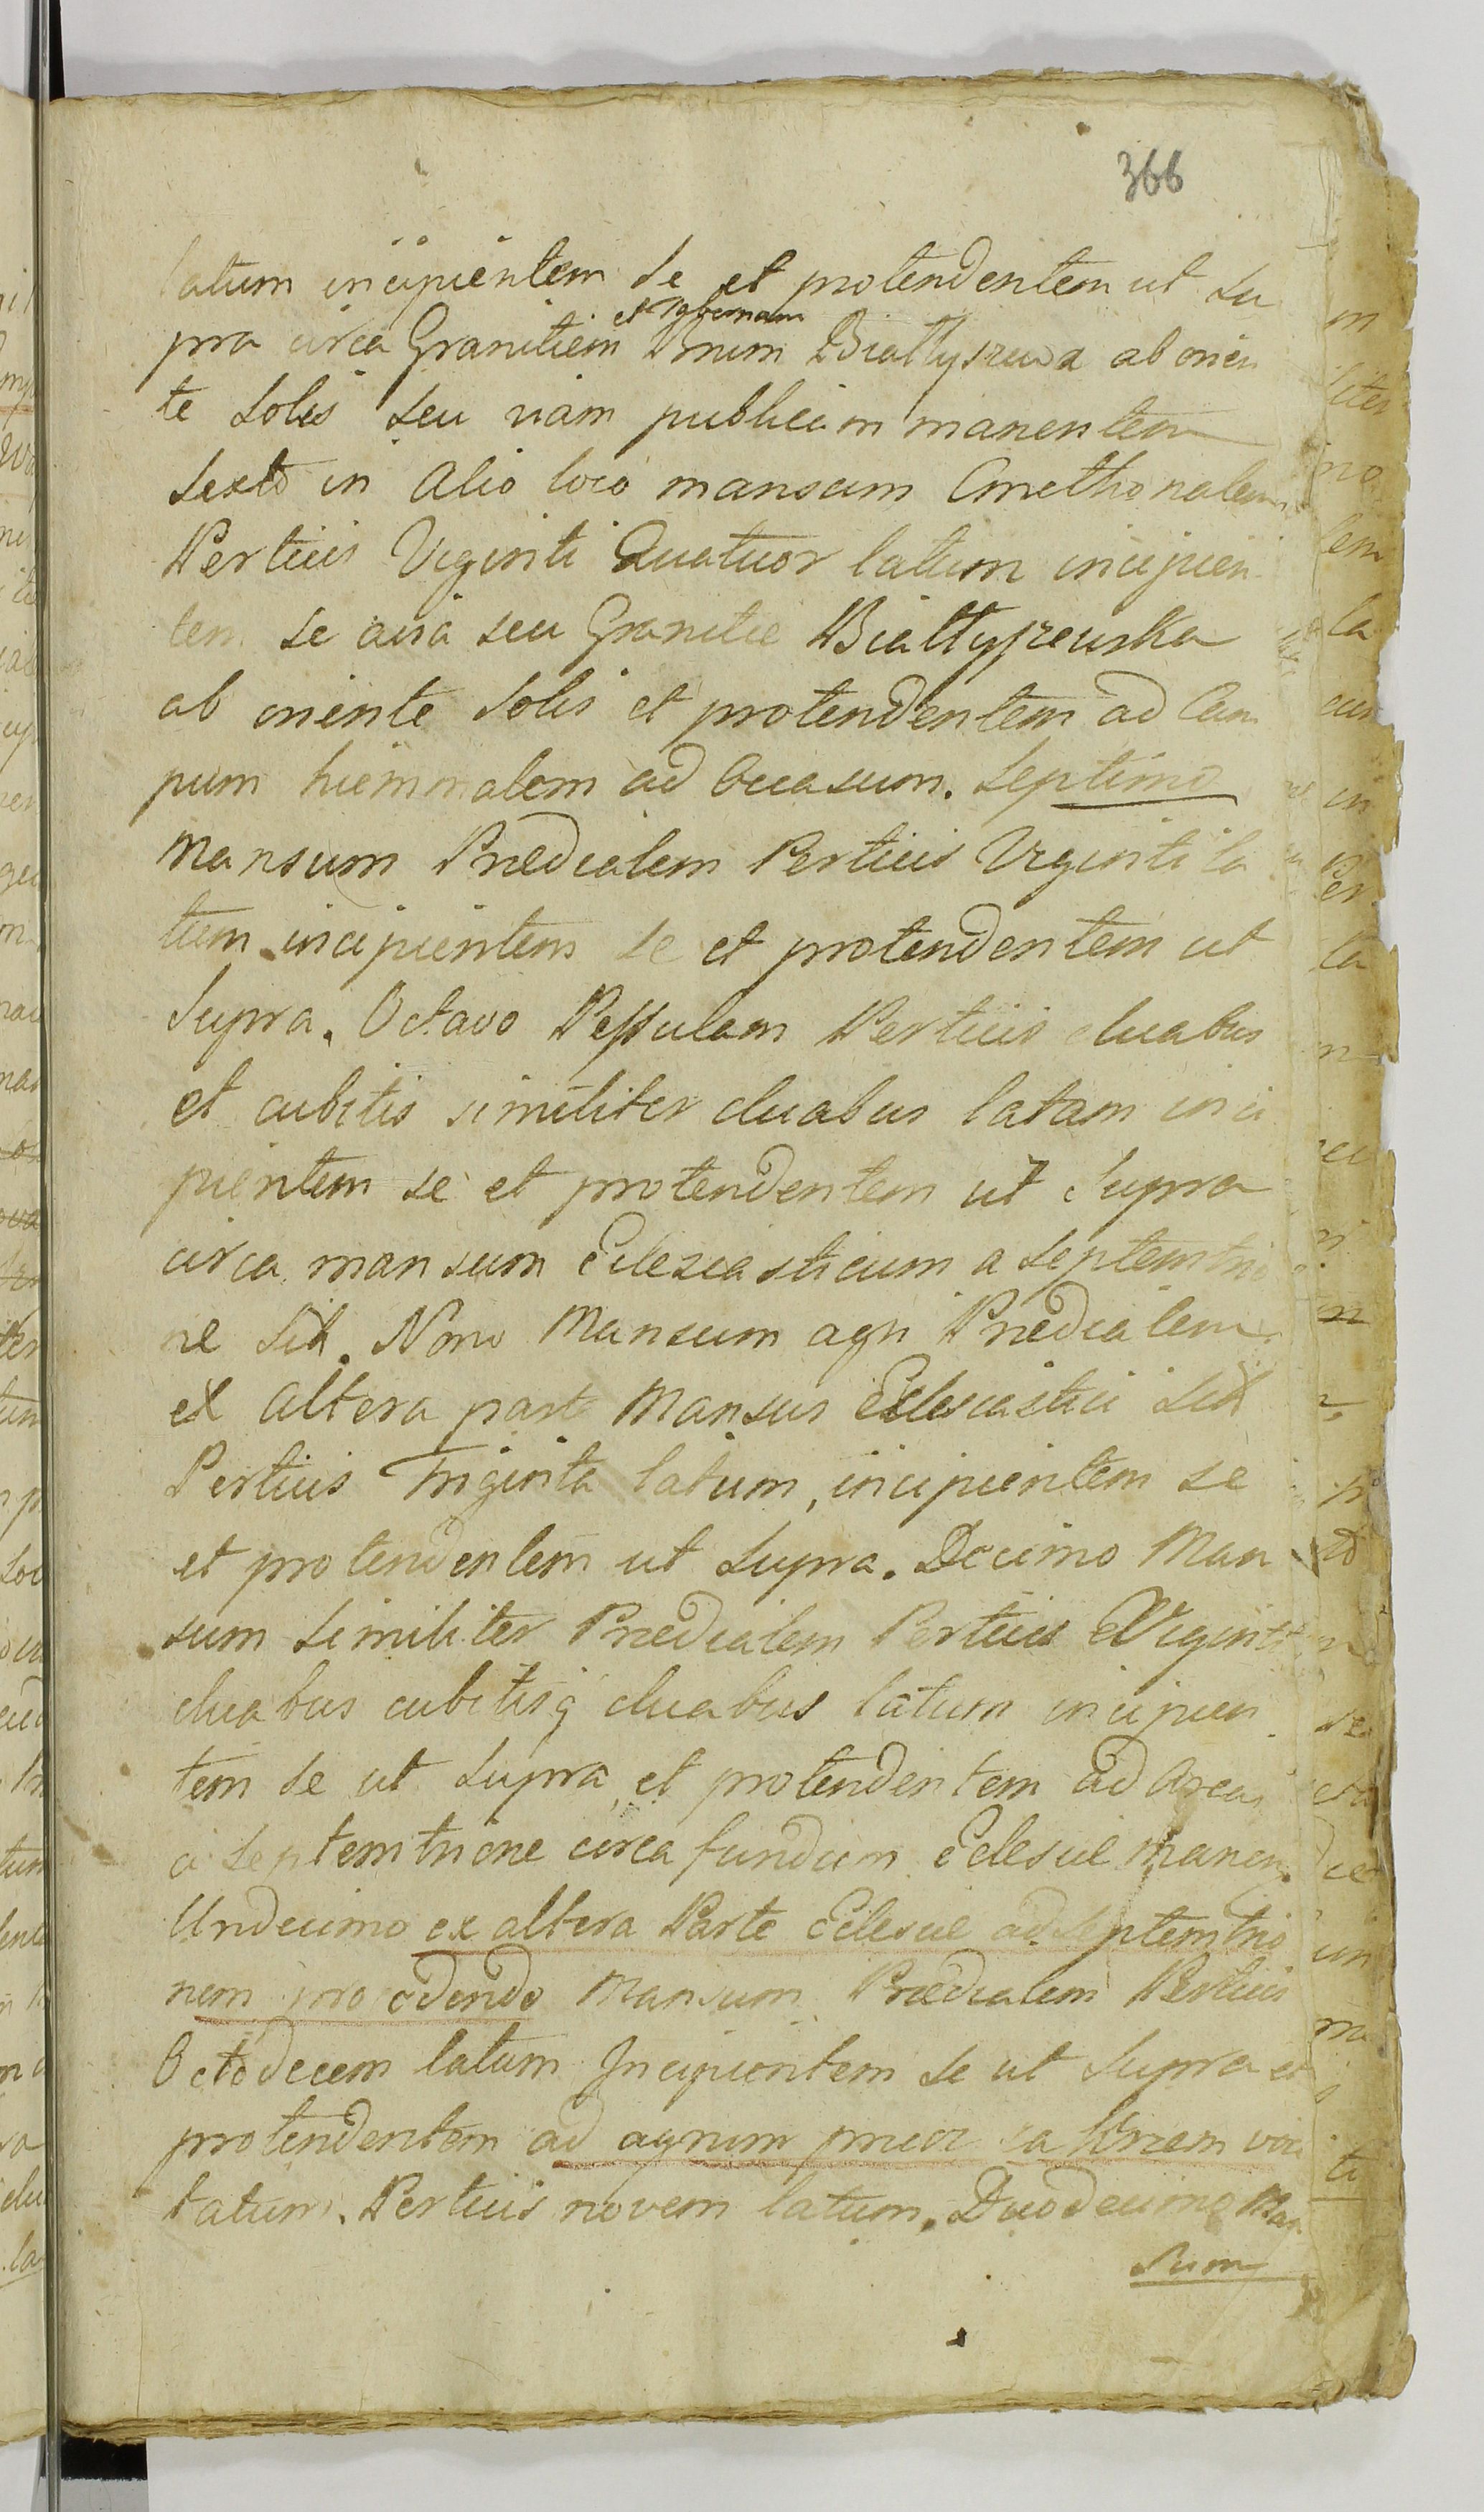 366
latum incipientem se et protendentem ut Su
et Tabernam
pra circa Granitiem Biallyszewa ab orien
te Solis seu viam publicam manentem
Sexto in Alio loco mansum Cmethonalem
Perticis Viginti Quatuor latum incipien
tem se seu Granitie Biallyszewska
ab oriente Solis et protendentem ad Cam
pum hiemmalem ad Occasum. Septimo
Mansum Prædialem Perticis Viginti la
tum incipientem se et protendentem ut
Supra. Octavo Pessulam Perticis duabus
et cubitis similiter duabus latam inci
pientem se et protendentem ut Supra
circa mansum Eclesiasticum a septemtrio
ne Sit. Nono Mansum agri Prædialem
ex altera parte Mansus Eclesiastici Sit
Perticis Triginta latum, incipientem se
et protendentem ut Supra. Decimo Man
sum Similiter Prædialem Perticis Viginti
duabus cubitisq duabus latum incipien
tem se ut Supra, et protendentem ad Areas
a Septemtrione circa fundum Eclesiæ manen.
Undecimo ex altera Parte Eclesiæ ad Septemtrio
nem procedendo Mansum Prædialem Perticis
Octodecem latum Incipientem se ut Supra et
protendentem ad agrum voci
tatum. Perticis novem latum. Duodecimo Man
Sum